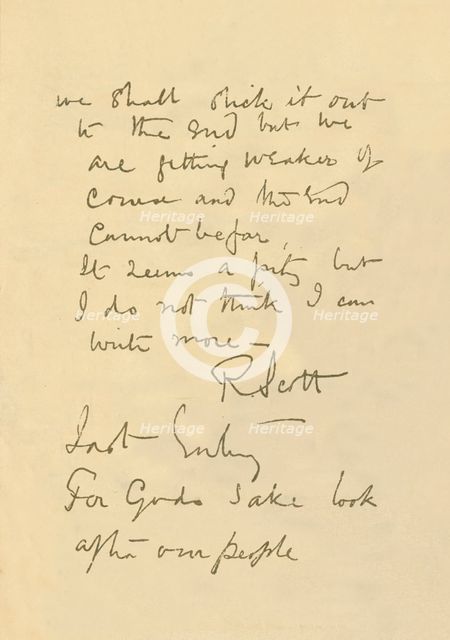 we shall stick it out
to the end but we
are getting weaker of
course and the end
cannot be far.
It seems a pity but
I do not think I can
write more —
R Scott
Last Entry
For Gods sake look
after our people
Heritage Heritage
Heritage Heritage
Heritage Heritage
C